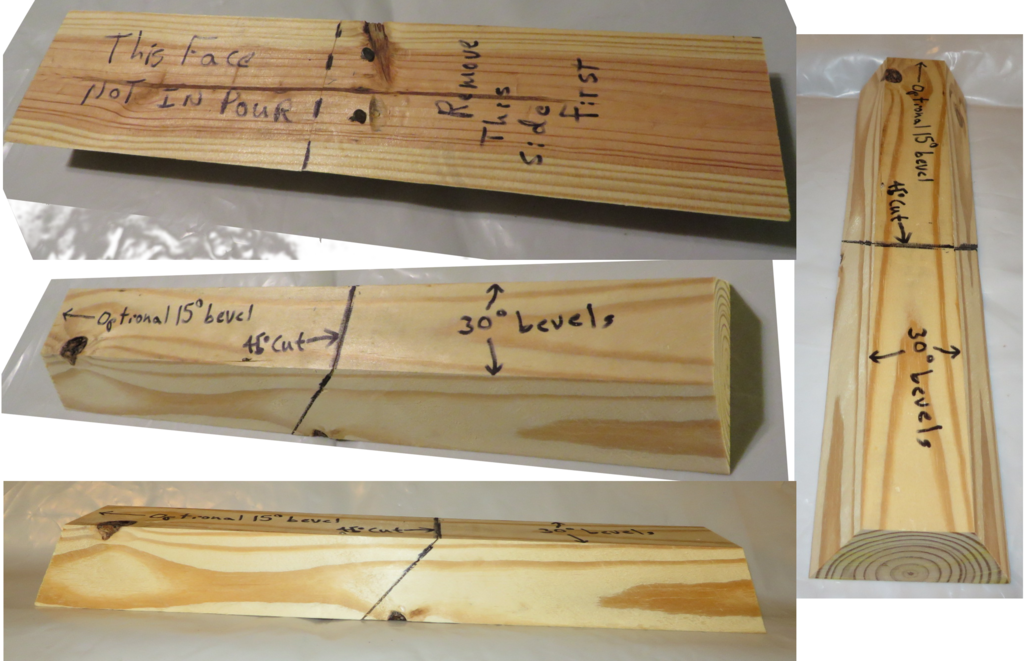 This Face
NOT IN POUR
Remove
This
Side
First
Optional 15° bevel
45° Cut
30° bevels
Optional 15° bevel
45° Cut
30° bevels
Optional 15° bevel
45° Cut
30° bevels